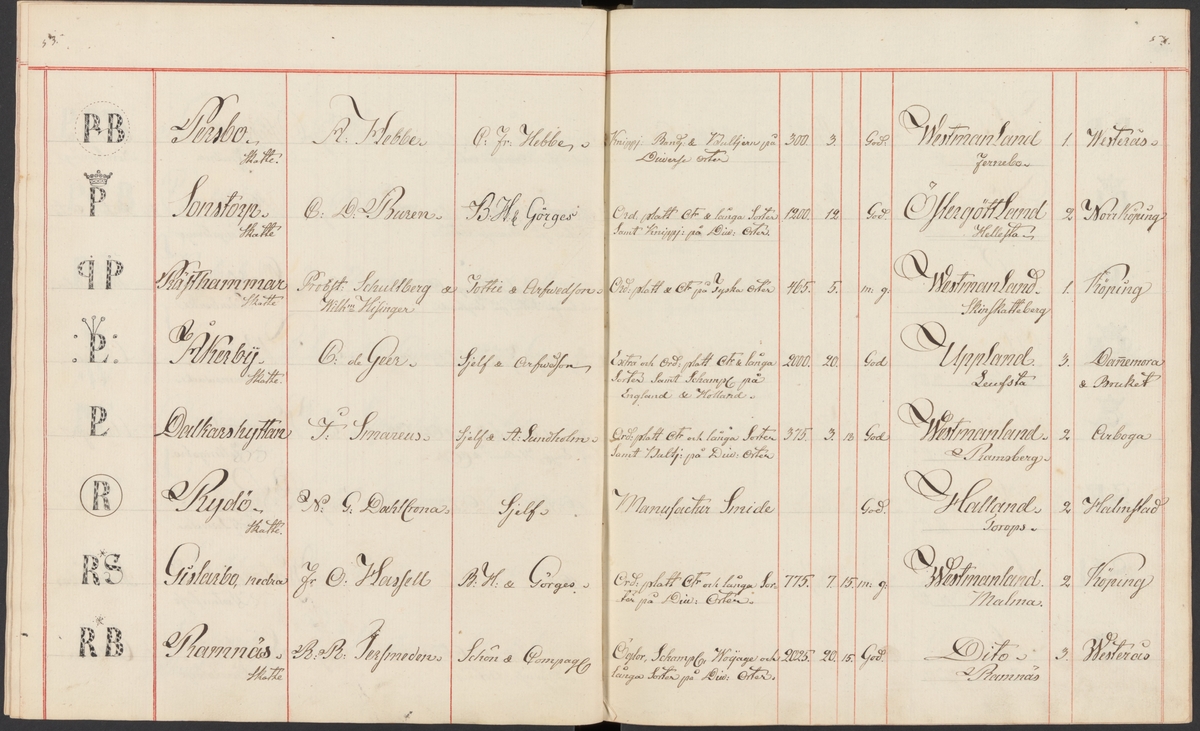 53.
54.
PB Persbo. A. Hebbe C. Fr: Hebbe. Knippj: Band & Bultjern på 300. 3. God. Westmanland 1. Westerås.
Skatte. Diverse orter Jerneboa
P Sonstorp. C: D. Buren. B. H. & Görges Ord. platt Ctr & långa Sorter 1200. 12. God Östergöttland 2 Norrköping
Skatte Samt Knippj: på Div: Orter. Hellesta
PP Räfshammar Probst: Schultberg & Tottie & Arfwedson. Ord: platt & Ctr på Tyska Orter 465. 5. m: g. Westmanland. 1. Köping
Skatte Wilh:m Hisinger Skinskatteberg
L Åkerby C: de Geer. Sjelf & Arfwedson Extra och Ord: platt Ctr & långa 2000. 20. God Uppland 3. Dannemora
Skatte. Sorter Samt Schampl på Leufsta & Bruket
England & Holland.
P Dalkarshyttan F: Smareus. Sjelf & A: Sundholm. Ord: platt Ctr och långa Sorter 375. 3. 18 God Westmanland. 2 Arboga
Samt Bultj: på Div: Orter Ramsberg
R Rydö. N: G: Dahlcrona Sjelf. Manufactur Smide God. Halland 2 Halmstad
Skatte. Torops.
RS Gislarbo nedra Fr O: Hassell B. H. & Görges. Ord: platt Ctr och långa Sor- 775. 7. 15. m: g: Westmanland. 2 Köping
ter på Div: Orter. Malma.
RB Ramnäs. R. R: Tersmeden. Schön & Compag Öglor, Schampl, Woyage och 2025. 20. 15. God. Dito. 3. Westerås
Skatte långa Sorter på Div: Orter. Ramnäs